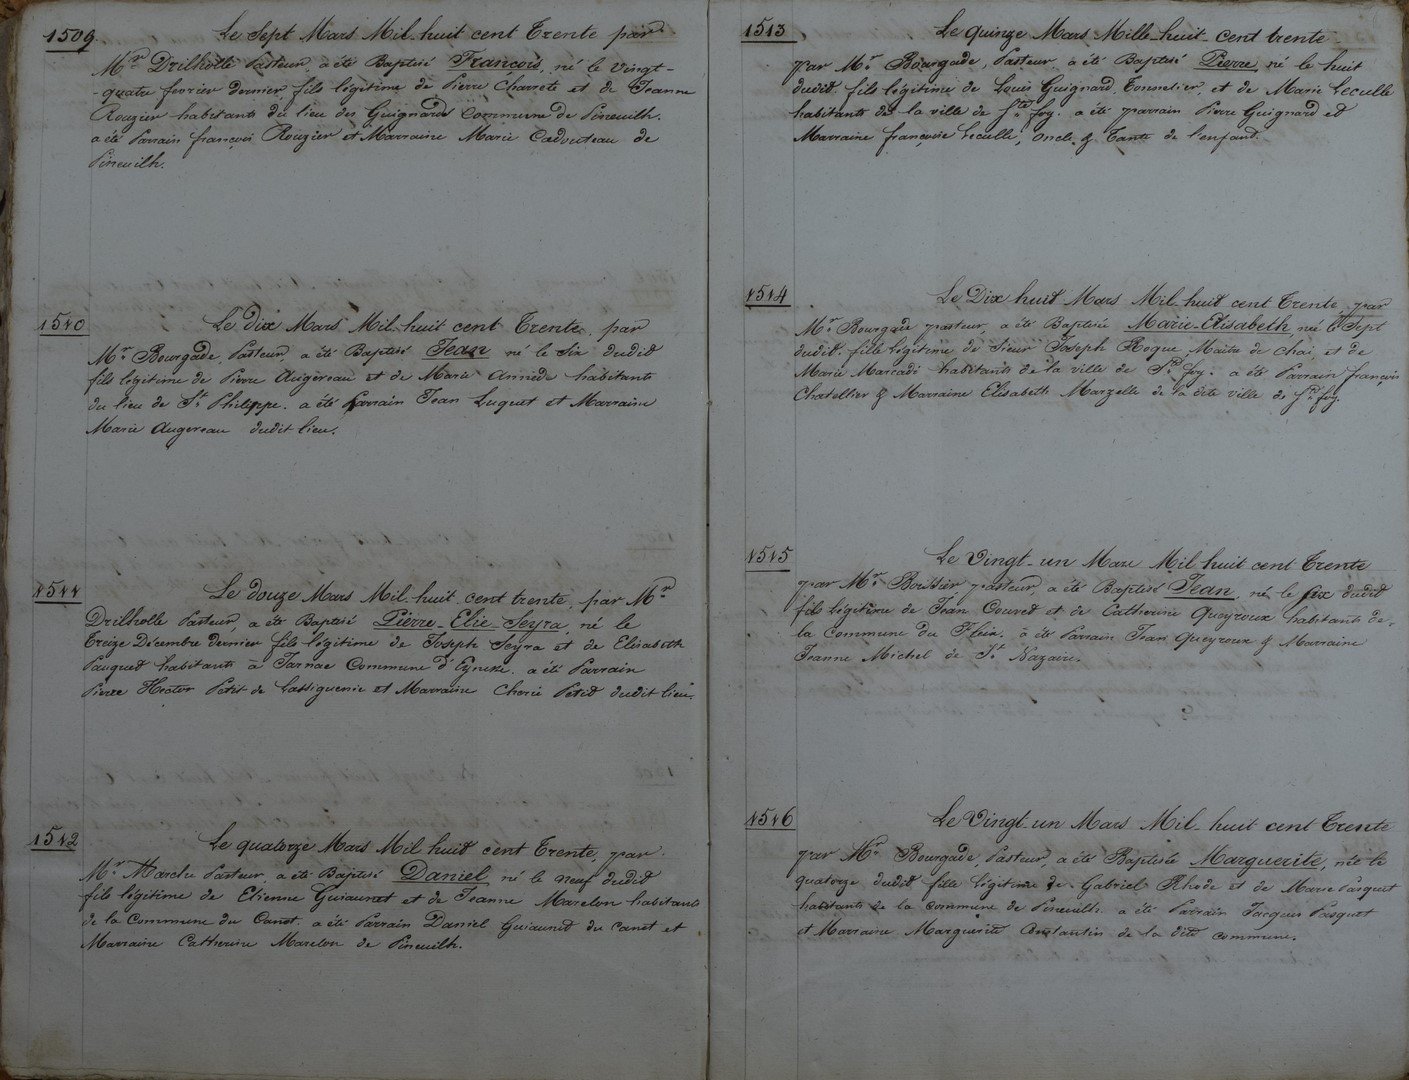 1509
Le Sept Mars Mil-huit cent Trente par
Mr Drilholle Pasteur, a été Baptisé François, né le Vingt-
-quatre fevrier dernier fils légitime de Pierre Charrete et de Jeanne
Rougier habitants du lieu des Guignards Commune de Pineuilh.
a été Parrain françois Rougier et Marraine Marie Cadouteau de
Pineuilh.
1510
Le dix Mars Mil-huit cent Trente, par
Mr Bourgade, Pasteur, a été Baptisé Jean né le Six dudit
fils légitime de Pierre Augereau et de Marie habitants
du lieu de St Philippe. a été Parrain Jean Luquet et Marraine
Marie Augereau dudit lieu.
1511
Le douze Mars Mil-huit cent trente, par Mr
Drilholle Pasteur, a été Baptisé Pierre-Elie-Seyra, né le
Treize Décembre dernier fils légitime de Joseph Seyra et de Elisabeth
Pauquet habitants à Jarnac Commune d'Eynesse. a été Parrain
Pierre Hector Petit de Lassiguenie et Marraine Cherie Petit dudit lieu.
1512
Le quatorze Mars Mil huit cent Trente, par
Mr Marche Pasteur, a été Baptisé Daniel, né le neuf dudit
fils légitime de Etienne Guiaunet et de Jeanne Marelon habitants
de la Commune du Canet a été Parrain Daniel Guiaunet du Canet et
Marraine Catherine Marelon de Pineuilh.
1513
Le quinze Mars Mille-huit-cent trente
par Mr Bourgade, Pasteur a été Baptisé Pierre, né le huit
dudit fils légitime de Louis Guignard Tonnelier, et de Marie Leculle
habitants de la ville de Ste foy. a été parrain Pierre Guignard et
Marraine françoise Leculle, oncle & Tante de l'enfand.
1514
Le Dix huit Mars Mil-huit cent Trente, par
Mr Bourgade pasteur, a été Baptisée Marie-Elisabeth, née le Sept
dudit. fille légitime de Sieur Joseph Roque, Maitre de chai, et de
Marie Marcadi habitants de la ville de Ste foy. a été Parrain françois
Chatellier & Marraine Elisabeth Marzelle de la dite ville de Ste foy.
1515
Le Vingt-un Mars Mil huit cent Trente
par Mr pasteur, a été Baptisé Jean, né le six dudit
fils légitime de Jean Couvet et de Catherine Queyroux habitants de
la Commune du Fleix. a été Parrain Jean Queyroux & Marraine
Jeanne Michel de St Nazaire.
1516
Le Vingt-un Mars Mil-huit cent Trente
par Mr Bourgade, Pasteur, a été Baptisée Marguerite, née le
quatorze dudit fille légitime de Gabriel Rhode et de Marie Pasquet
habitants de la commune de Pineuilh. a été Parrain Jacques Pasquet
et Marraine Marguerite Constantin de la dite commune.